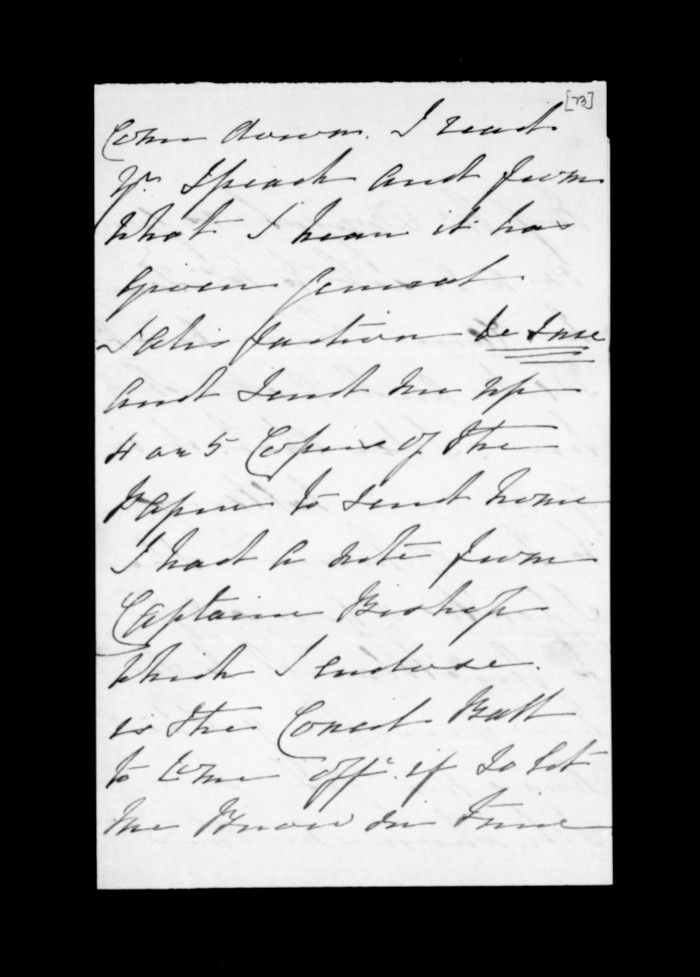 [73]
Come down. I read
Yr. Speach and from
what I hear it has
given general
Satisfaction be sure
and send me up
4 or 5 Copies of the
Paper to send home
I had a note from
Captain Bishop
which I enclose.
is the Ball
to come off. if so let
me Know in time